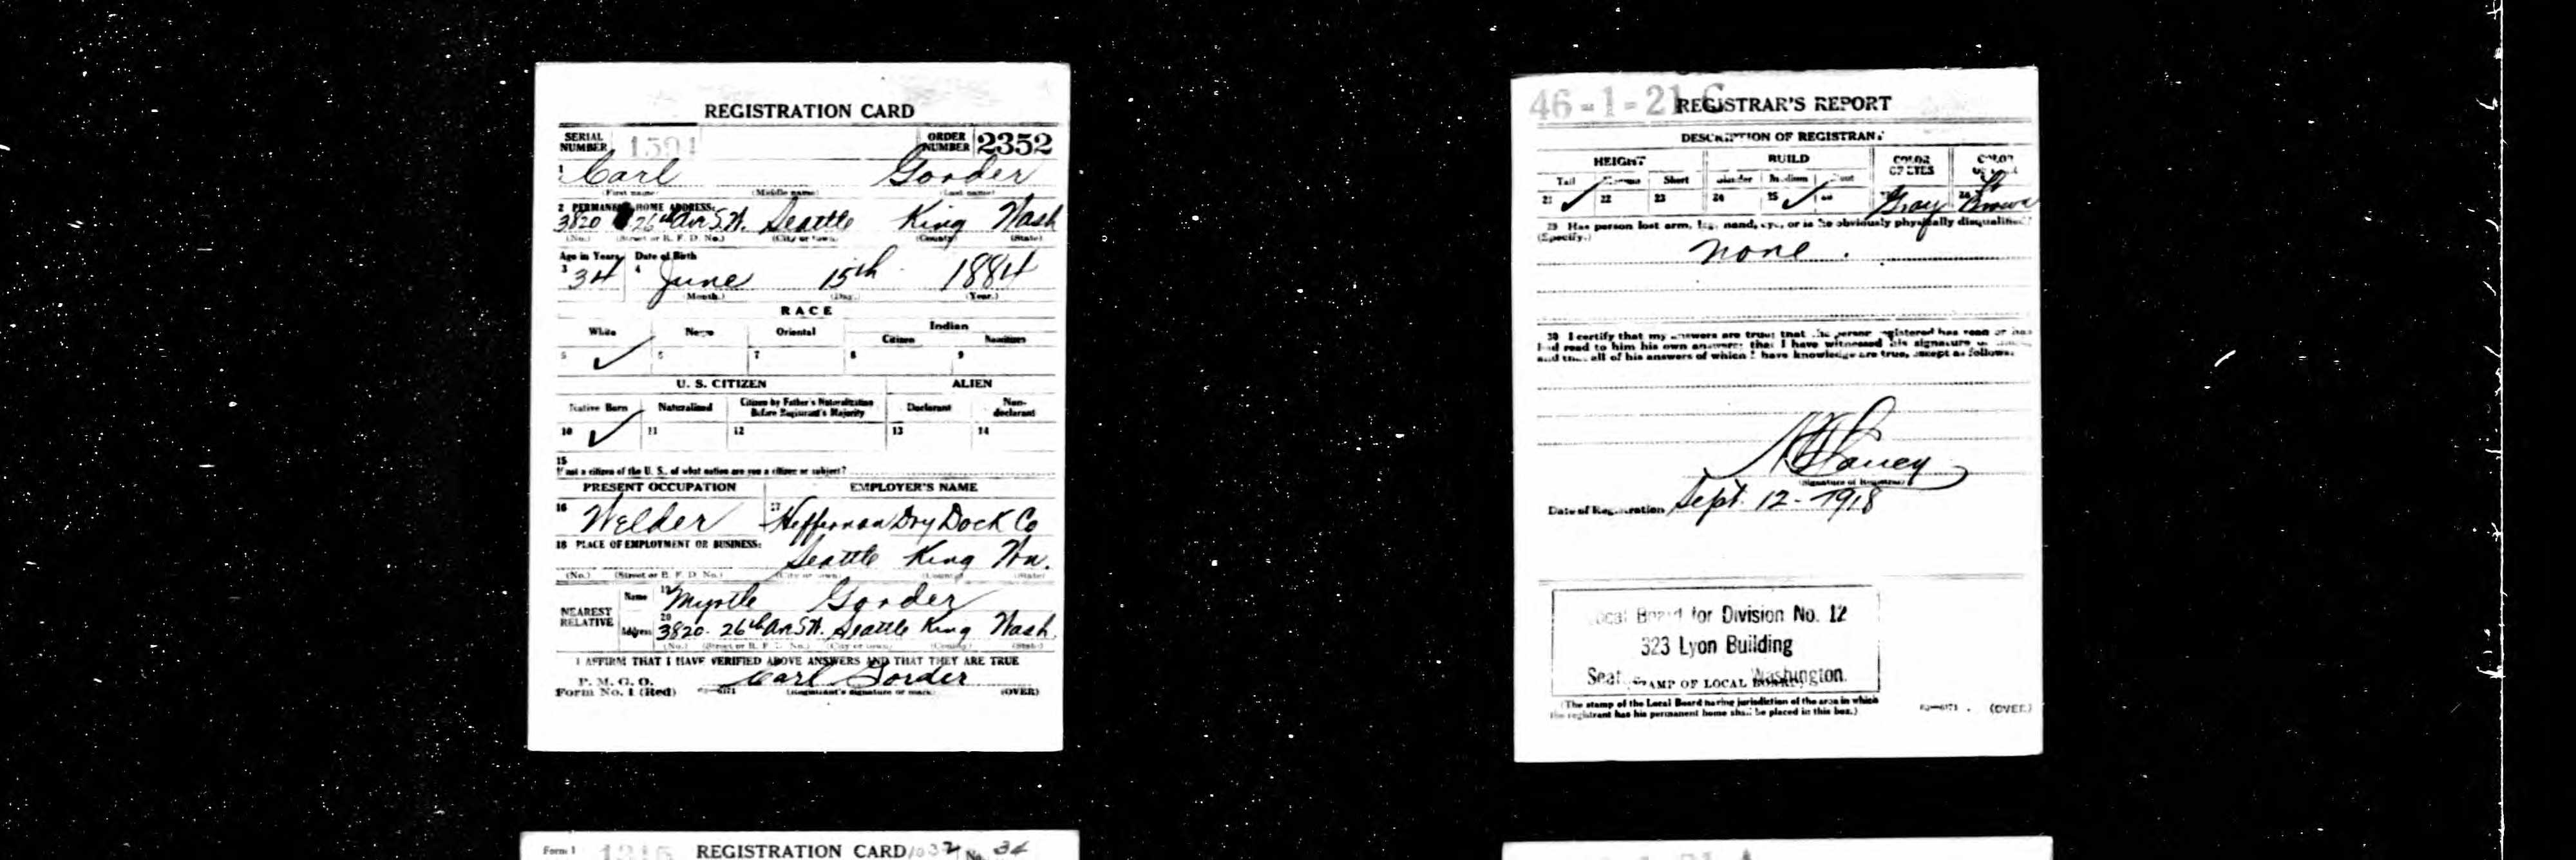 REGISTRATION CARD
SERIAL NUMBER 1594 ORDER NUMBER 2352
1 Carl Gorder
(First name) (Middle name) (Last name)
2 PERMANENT HOME ADDRESS:
3820 26th Av S.W. Seattle King Wash
(No.) (Street or R. F. D. No.) (City or town) (County) (State)
Age in Years Date of Birth
3 34 4 June 15th 1884
(Month.) (Day.) (Year.)
RACE
White Negro Oriental Indian
Citizen Noncitizen
5 ✓ 6 7 8 9
U. S. CITIZEN ALIEN
Native Born Naturalized Citizen by Father's Naturalization Before Registrant's Majority Declarant Non-declarant
10 ✓ 11 12 13 14
15
If not a citizen of the U. S., of what nation are you a citizen or subject?
PRESENT OCCUPATION EMPLOYER'S NAME
16 Welder 17 Heffernan Dry Dock Co
18 PLACE OF EMPLOYMENT OR BUSINESS:
Seattle King Wn.
(No.) (Street or R. F. D. No.) (City or town) (County) (State)
NEAREST RELATIVE
Name 19 Myrtle Gorder
Address 20 3820 26th Av S.W. Seattle King Wash
(No.) (Street or R. F. D. No.) (City or town) (County) (State)
I AFFIRM THAT I HAVE VERIFIED ABOVE ANSWERS AND THAT THEY ARE TRUE
P. M. G. O.
Form No. 1 (Red) Carl Gorder
(Registrant's signature or mark) (OVER)
46-1-21 C REGISTRAR'S REPORT
DESCRIPTION OF REGISTRANT
HEIGHT BUILD COLOR OF EYES COLOR OF HAIR
Tall Medium Short Slender Medium Stout
21 ✓ 22 23 24 25 ✓ 26 27 Gray 28 Brown
29 Has person lost arm, leg, hand, eye, or is he obviously physically disqualified?
(Specify.)
none.
30 I certify that my answers are true; that the person registered has read or has
had read to him his own answers; that I have witnessed his signature or mark,
and that all of his answers of which I have knowledge are true, except as follows:
(Signature of Registrar)
Date of Registration Sept. 12 - 1918
Local Board for Division No. 12
323 Lyon Building
Seattle, Washington.
(STAMP OF LOCAL BOARD)
(The stamp of the Local Board having jurisdiction of the area in which
the registrant has his permanent home shall be placed in this box.)
(OVER)
Form 1 REGISTRATION CARD 1032 No. 34